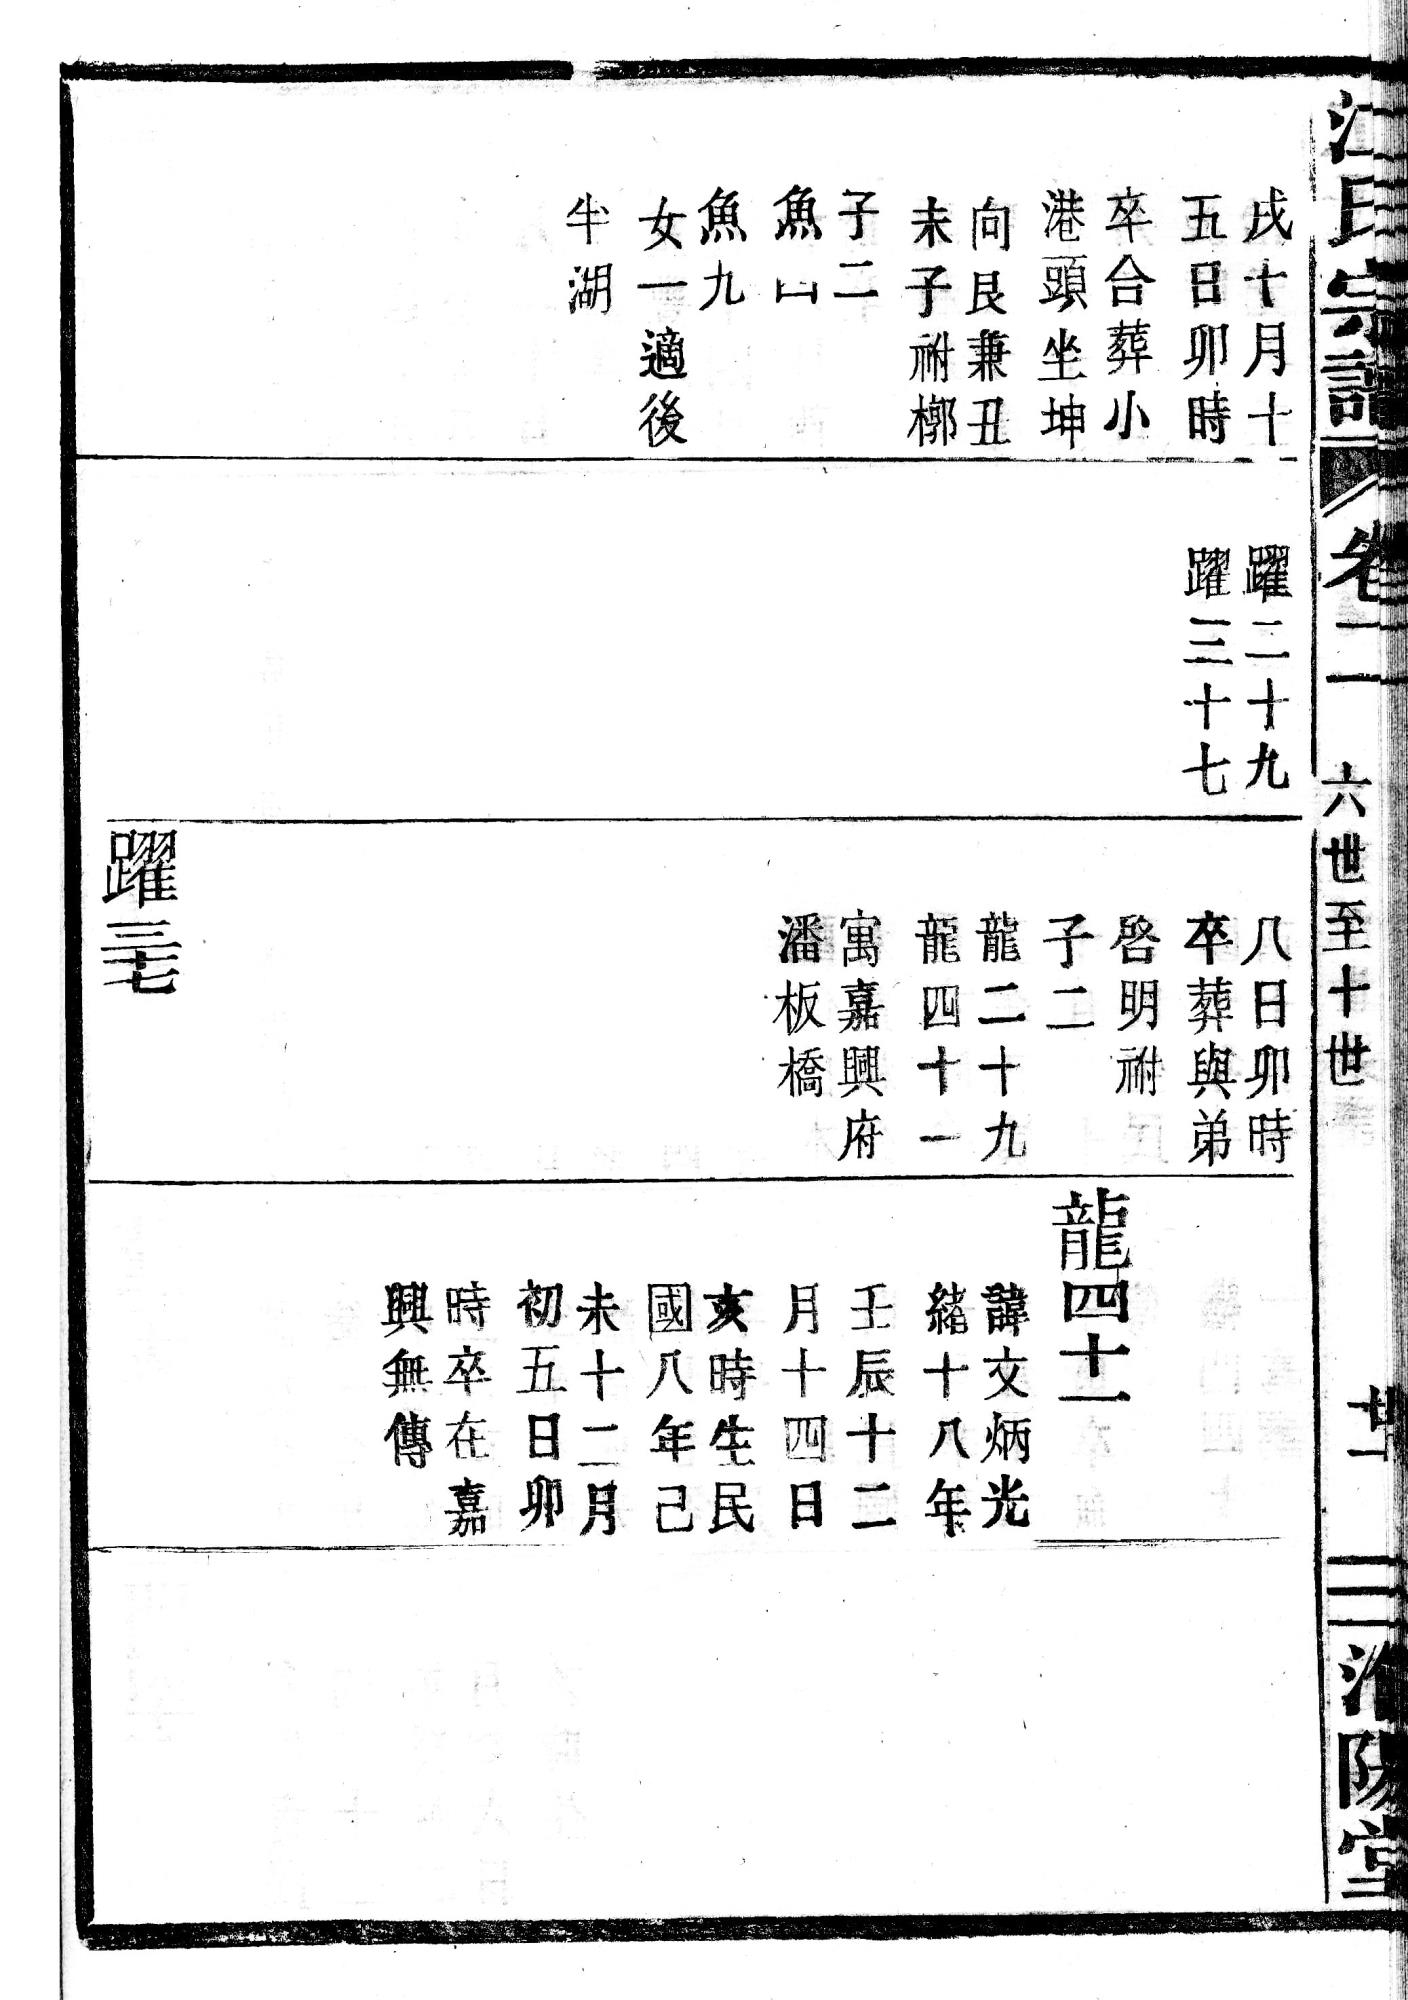 江氏宗譜
卷二
六世至十世
廿一
濟陽堂
戌十月十
五日卯時
卒合葬小
港頭坐坤
向艮兼丑
未子祔槨
子二
魚四
魚九
女一適後
半湖
躍二十九
躍三十七
八日卯時
卒葬與弟
啓明祔
子二
龍二十九
龍四十一
寓嘉興府
潘板橋
躍三七
龍四十一
諱文炳光
緒十八年
壬辰十二
月十四日
亥時生民
國八年己
未十二月
初五日卯
時卒在嘉
興無傳